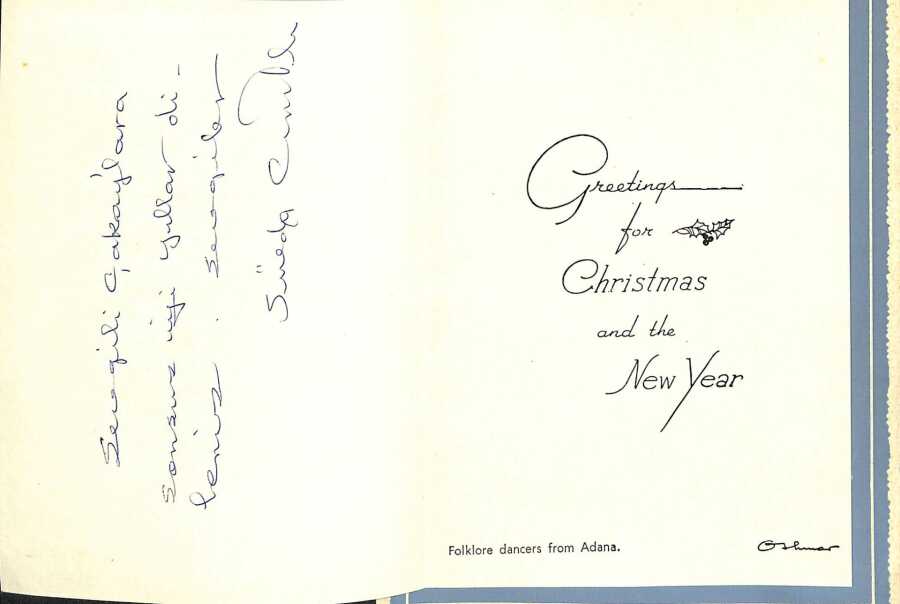 Sevgili Çakaylara
Sonsuz iyi yıllar di-
leriz. Sevgiler
Süeda
Greetings
for
Christmas
and the
New Year
Folklore dancers from Adana.